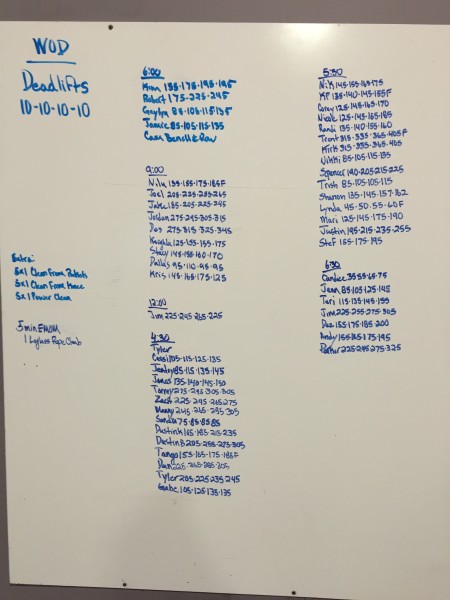 WOD
Deadlifts
10-10-10-10
Extra:
5x1 Clean From
5x1 Clean From Knee
5x1 Power Clean
5 min EMOM
1 Legless Rope Climb
6:00
Kim 155-175-195-195
Robert 175-225-245
85-105-115-135
Jamie 85-105-115-135
Row
9:00
155-155-175-185F
Joel 205-225-235-245
Jake 185-205-225-245
Jordan 275-295-305-315
275-315-325-345
Kayla 125-155-155-175
Stacy 145-155-160-170
Dallas 95-110-95-95
Kris 145-165-175-125
12:00
Jim 225-245-265-225
4:30
Tyler
Cassi 105-115-125-135
85-115-135-145
James 135-140-145-150
275-295-305-305
Zach 225-245-265-275
Manny 245-265-285-305
Sandra 75-85-85-85
Dustin 165-185-215-235
Dustin B 205-255-275-305
Tango 155-165-175-185F
Dan 225-265-285-305
Tyler 205-225-235-245
Gabe 105-125-135-135
5:30
Nik 145-155-165-175
KP 135-140-145-155F
Corey 125-145-165-170
Nicole 125-145-165-185
Randi 135-140-155-160
Trent 315-335-365-405F
Kirk 315-335-365-405
Nikki 85-105-115-135
Spencer 190-205-215-225
Trish 85-105-105-115
Shannon 135-145-157-162
Lynda 45-50-55-60F
Mari 125-145-175-190
Justin 195-215-235-255
Stef 155-175-195
6:30
Candice 35-55-65-75
Jean 85-105-125-145
Tari 115-135-145-155
Jim 225-255-275-305
Daz 155-175-185-200
Andy 155-165-175-195
225-245-275-325